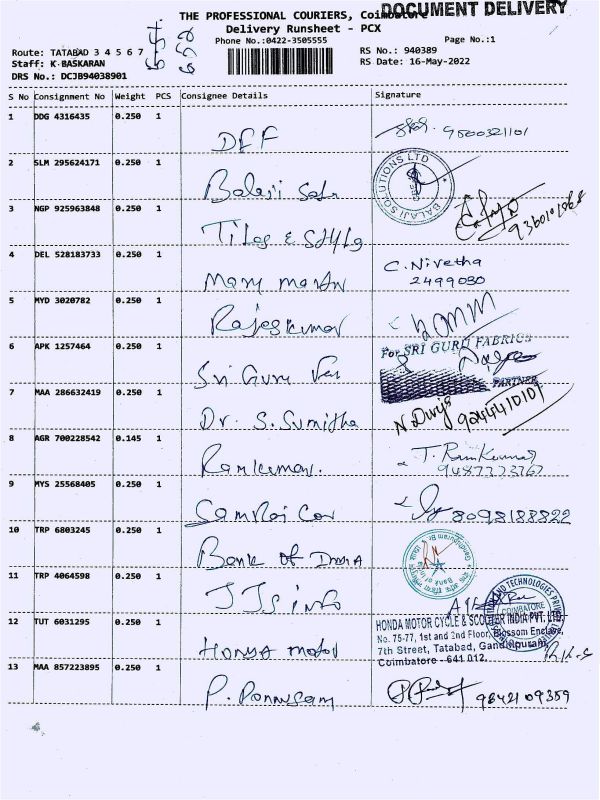 THE PROFESSIONAL COURIERS, Coimbatore
DOCUMENT DELIVERY
Delivery Runsheet - PCX
Phone No.:0422-3505555
Page No.:1
Route: TATABAD 3 4 5 6 7
RS No.: 940389
Staff: K BASKARAN
RS Date: 16-May-2022
DRS No.: DCJB94038901
S No Consignment No Weight PCS Consignee Details Signature
1 DDG 4316435 0.250 1
DFF 9500321101
2 SLM 295624171 0.250 1
Balaji Soln
BALAJI SOLUTIONS LTD
3 NGP 925963848 0.250 1
Tiles & Style
4 DEL 528183733 0.250 1
C. Nivetha
Mary Martin 2499030
5 MYD 3020782 0.250 1
Rajeskumar
6 APK 1257464 0.250 1
For SRI GURU FABRICS
Sri Guru Fab
PARTNER
7 MAA 286632419 0.250 1
Dr. S. Sumitha 9244410101
8 AGR 700228542 0.145 1
Ramkumar. T. Ramkumar
9487773767
9 MYS 25568405 0.250 1
8098188822
10 TRP 6803245 0.250 1
Bank of India
11 TRP 4064598 0.250 1
JJs info
COIMBATORE
12 TUT 6031295 0.250 1
HONDA MOTOR CYCLE & SCOOTER INDIA PVT. LTD.
No. 75-77, 1st and 2nd Floor, Blossom Enclave,
7th Street, Tatabad, Gandhipuram,
Coimbatore - 641 012.
Honda motor
13 MAA 857223895 0.250 1
P. Ponnusam 9842109359